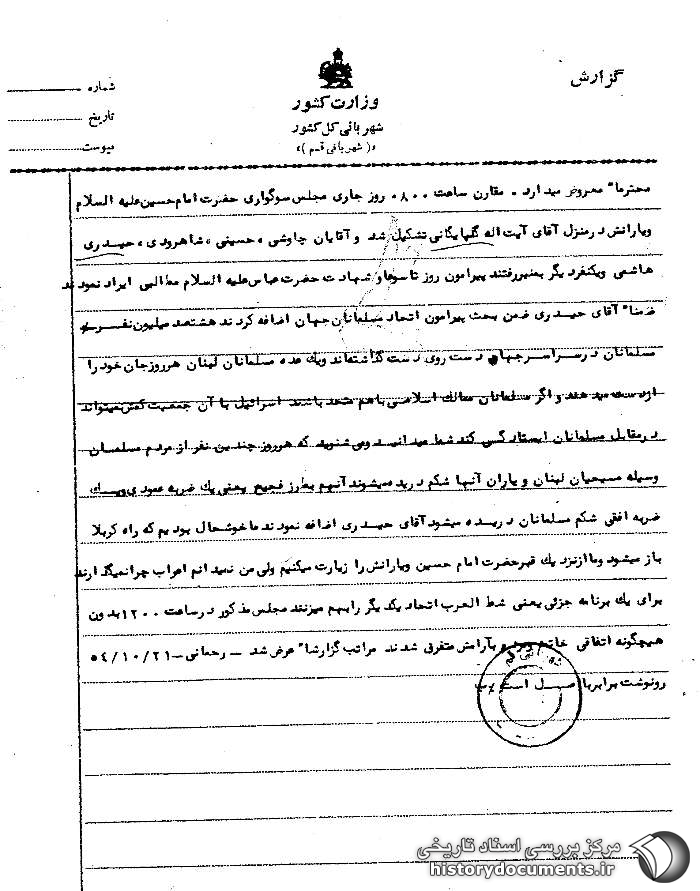 گزارش
وزارت کشور
شهربانی کل کشور
«(شهربانی قم)»
شماره
تاریخ
پیوست
محترما" معروض میدارد. مقارن ساعت ۰۸۰۰ روز جاری مجلس سوگواری حضرت امام حسین علیه السلام
ویارانش درمنزل آقای آیت اله گلپایگانی تشکیل شد و آقایان چاوشی، حسینی، شاهرودی، حیدری
هاشمی ویکنفردیگر بمنبررفتند پیرامون روز تاسوعا وشهادت حضرت عباس علیه السلام مطالبی ایراد نمودند
ضمنا" آقای حیدری ضمن بحث پیرامون اتحاد مسلمانان جهان اضافه کردند هشتصد میلیون نفر
مسلمانان درسراسرجهان دست روی دست گذاشته‌اند ویک عده مسلمانان لبنان هرروزجان خود را
ازدست میدهند و اگر مسلمانان ممالک اسلامی باهم متحد باشند اسرائیل با آن جمعیت کمش نمیتواند
درمقابل مسلمانان ایستادگی کند شما میدانید ومی شنوید که هرروز چندین نفر از مردم مسلمان
وسیله مسیحیان لبنان و یاران آنها شکم دریده میشوند آنهم بطرز فجیع یعنی یك ضربه عمودی ویك
ضربه افقی شکم مسلمانان دریده میشود آقای حیدری اضافه نمودند ماخوشحال بودیم که راه کربلا
باز میشود وماازنزدیك قبرحضرت امام حسین ویارانش را زیارت میکنیم ولی من نمیدانم اعراب چرانمیگذارند
برای یك برنامه جزئی یعنی شط العرب اتحاد یکدیگر رابهم میزنند مجلس مذکور درساعت ۱۲۰۰ بدون
هیچگونه اتفاقی خاتمه و بآرامش متفرق شدند مراتب گزارشا" عرض شد – رحمانی – ۵۴/۱۰/۲۱
رونوشت برابربا اصل است
شهربانی قم
مرکز بررسی اسناد تاریخی
historydocuments.ir